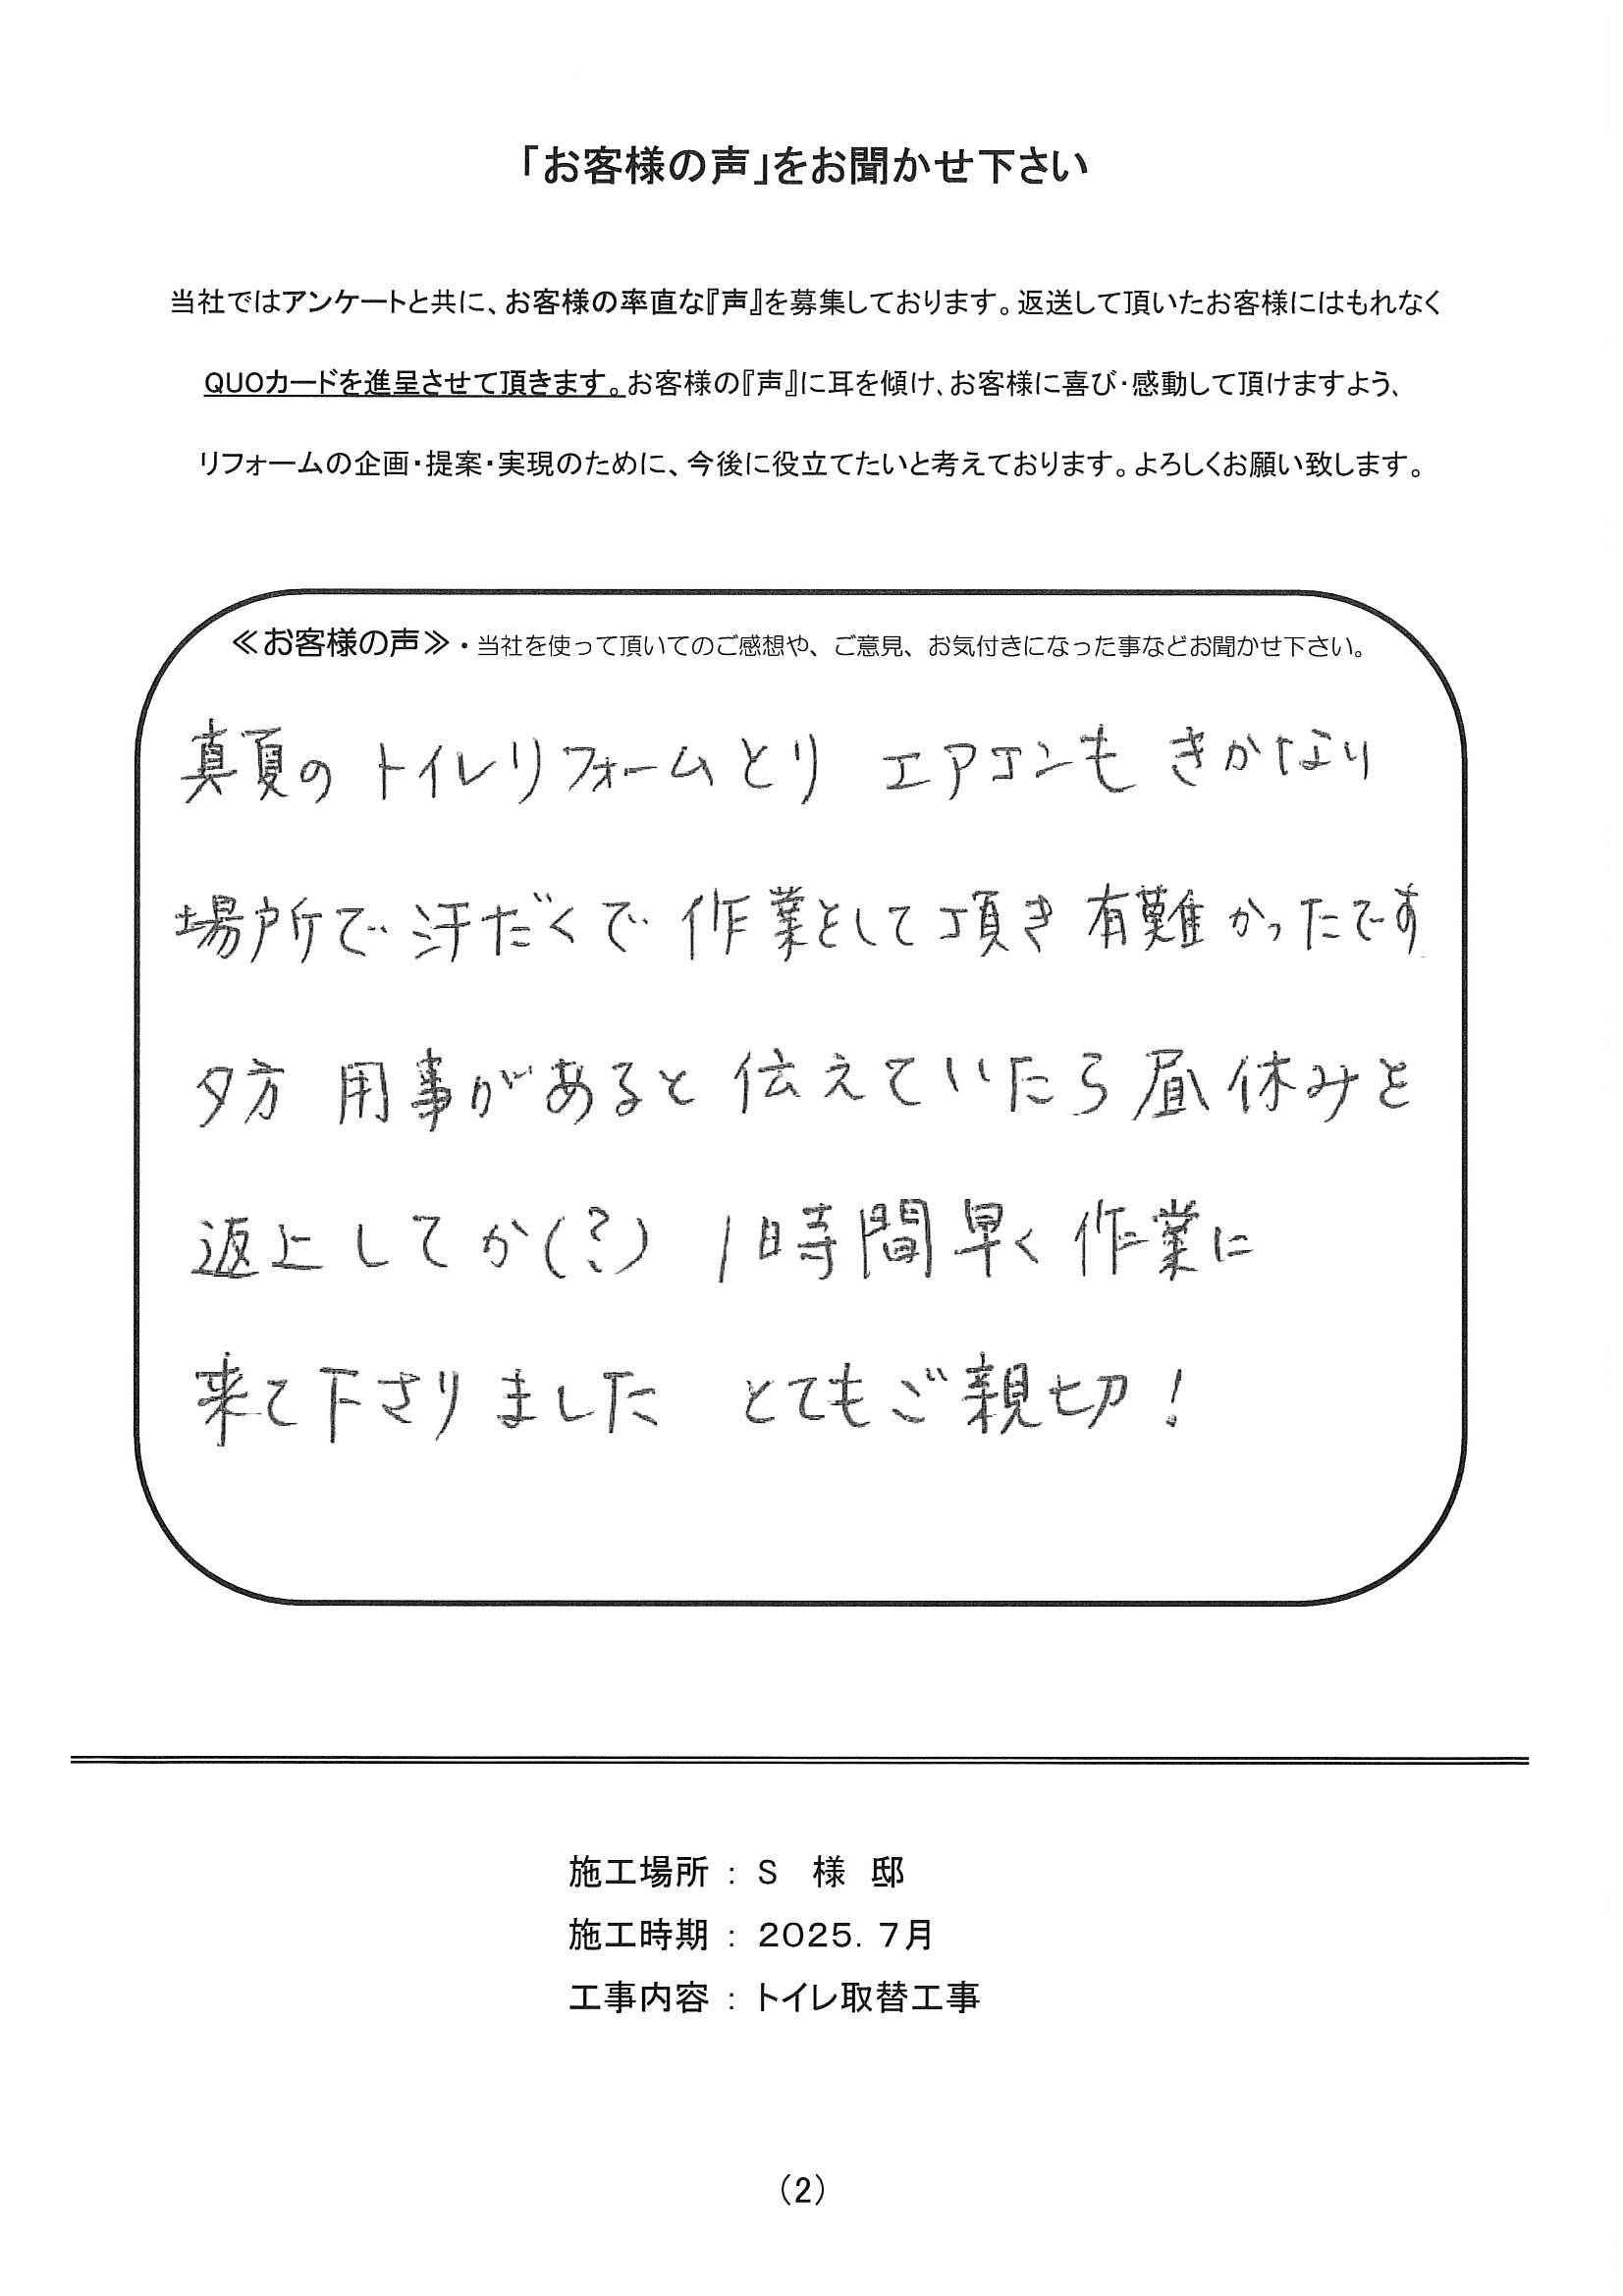 「お客様の声」をお聞かせ下さい
当社ではアンケートと共に、お客様の率直な『声』を募集しております。返送して頂いたお客様にはもれなく
QUOカードを進呈させて頂きます。お客様の『声』に耳を傾け、お客様に喜び・感動して頂けますよう、
リフォームの企画・提案・実現のために、今後に役立てたいと考えております。よろしくお願い致します。
≪お客様の声≫・当社を使って頂いてのご感想や、ご意見、お気付きになった事などお聞かせ下さい。
真夏の トイレリフォームとり エアコンも きかなり
場所で 汗だくで 作業として頂き 有難かったです
夕方 用事があると 伝えていたら昼休みを
返上してか(?) 1時間早く作業に
来て下さりました とてもご親切!
施工場所 : S 様 邸
施工時期 : 2025. 7月
工事内容 : トイレ取替工事
(2)